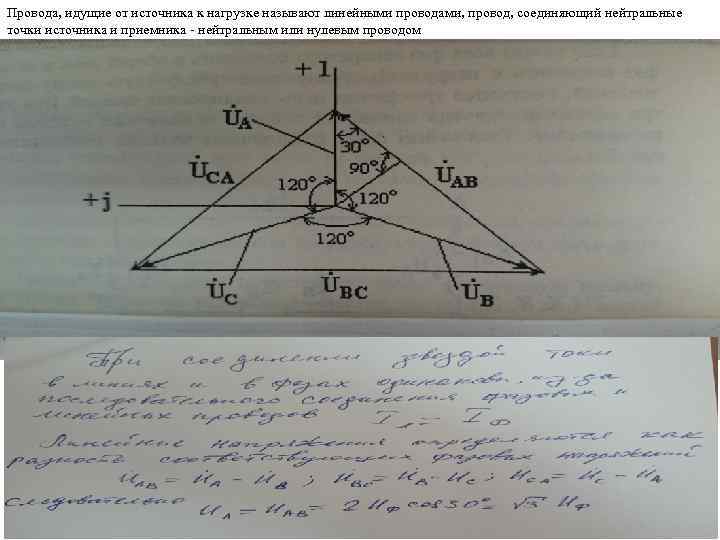 Провода, идущие от источника к нагрузке называют линейными проводами, провод, соединяющий нейтральные
точки источника и приемника - нейтральным или нулевым проводом
+1
U̇A
30°
U̇CA
90°
U̇AB
120°
120°
+j
120°
U̇C
U̇BC
U̇B
При соединении звездой токи
в линиях и в фазах одинаковы, из-за
последовательного соединения фазовых и
линейных проводов Iл = IФ
Линейные напряжения определяются как
разность соответствующих фазовых напряжений
U̇AB = U̇A - U̇B ; U̇BC = U̇B - U̇C ; U̇CA = U̇C - U̇A
следовательно
UЛ = UAB = 2 UФ cos 30° = √3 UФ